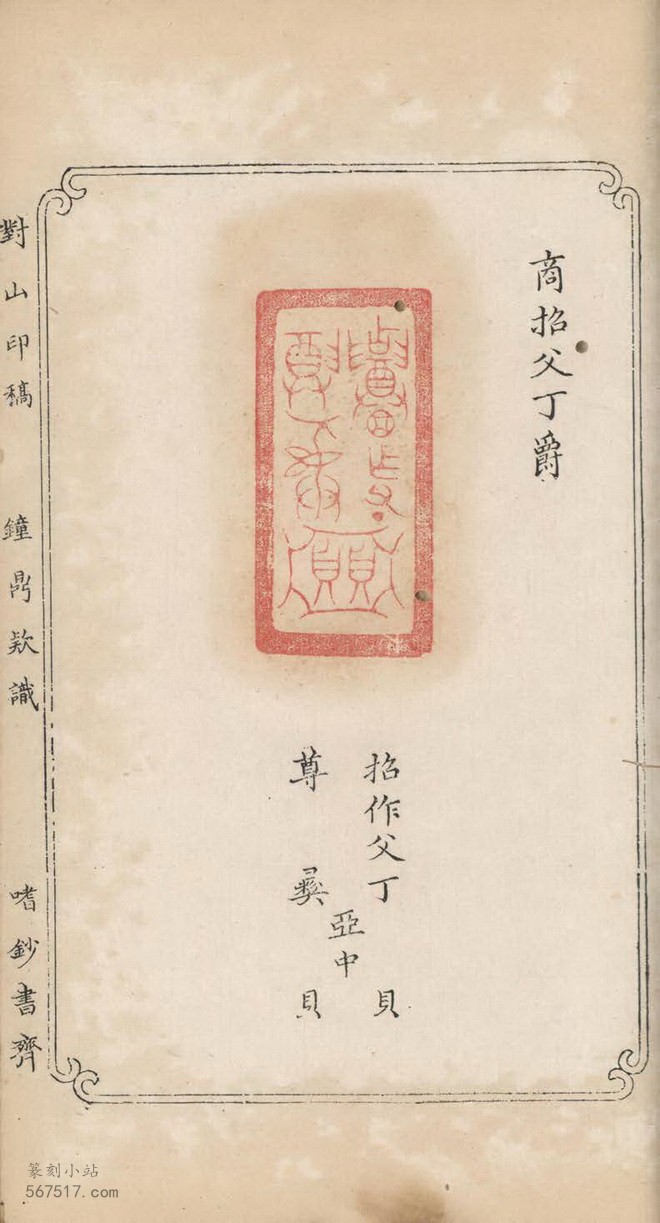 商招父丁爵
招作父丁
貝
亞中
尊彝
貝
對山印稿 鐘鼎欵識 嗜鈔書齋
篆刻小站
567517.com